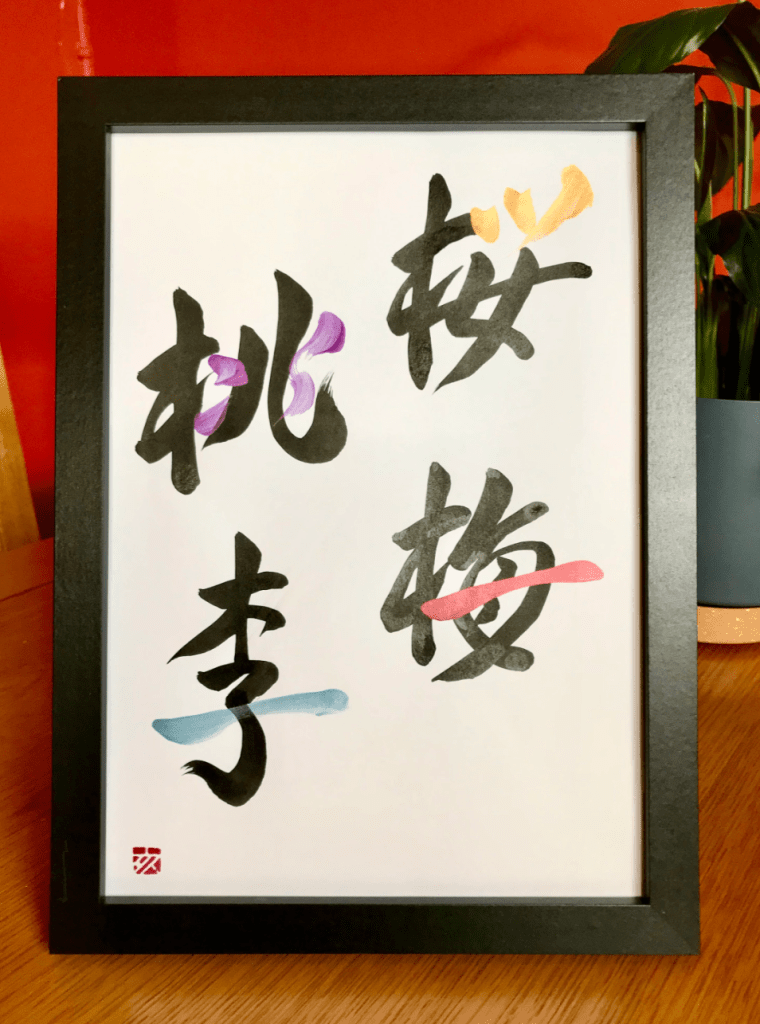 桜梅
桃李